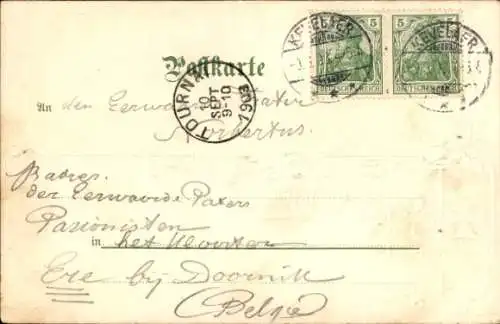 5 5
DEUTSCHES REICH DEUTSCHES REICH
KEVELAER KEVELAER
Postkarte
TOURNAI
10
SEPT
9-10
1903
An den Eerwaarden Pater
Norbertus
der Eerwaerde Paters
Pasionisten
in het Klooster
Ere bij Doornik
(Belgie)